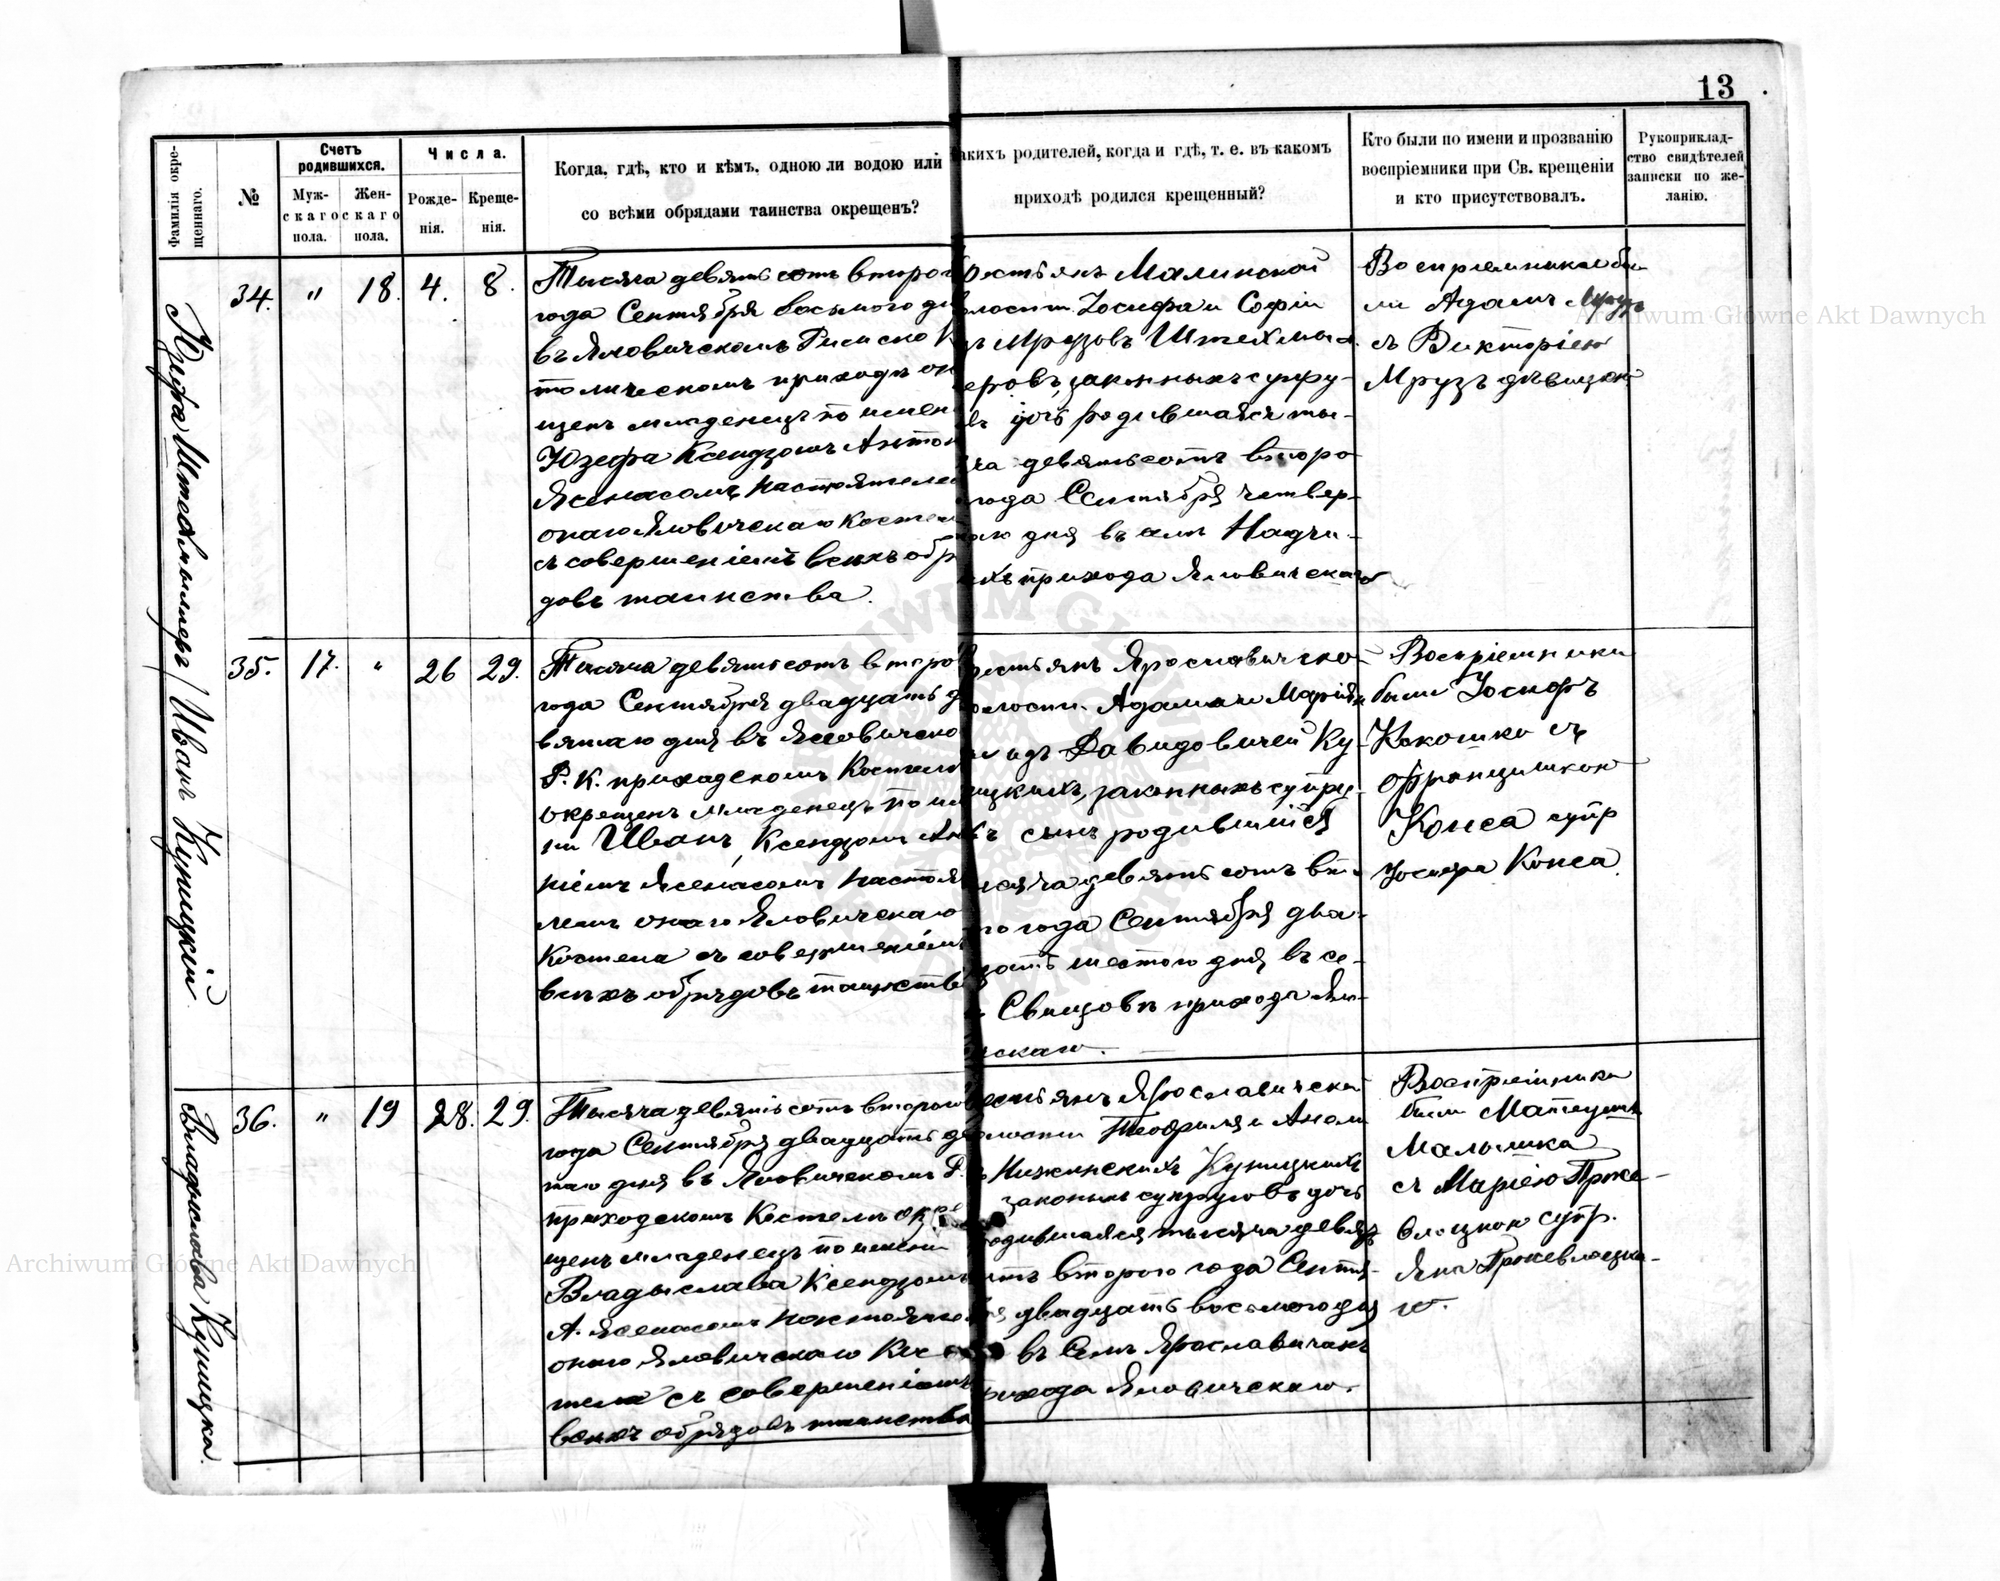 13
Фамилія окре-
щеннаго.
№
Счетъ
родившихся.
Муж-
скаго
пола.
Жен-
скаго
пола.
Числа.
Рожде-
нія.
Креще-
нія.
Когда, гдѣ, кто и кѣмъ, одною ли водою или
со всѣми обрядами таинства окрещенъ?
акихъ родителей, когда и гдѣ, т. е. въ какомъ
приходѣ родился крещенный?
Кто были по имени и прозванію
воспріемники при Св. крещеніи
и кто присутствовалъ.
Рукоприклад-
ство свидѣтелей
записки по же-
ланію.
34. " 18. 4. 8.
Тысяча девятьсотъ второ
года Сентября восьмого д
въ Яловичскомъ Римско К
толическомъ приходѣ ок
щенъ младенецъ по имен
Юзефа Ксендзомъ Антон
Ясенасомъ Настоятеле
онаго Яловичскаго Косте
съ совершеніемъ всѣхъ обр
довъ таинства.
рестьянъ Малинской
волости Іосифа и Софіи
Мрузовъ Штехмил
еровъ, законныхъ супру-
дочь родившаяся ты-
ча девятьсотъ второ
года Сентября четвер-
аго дня въ
прихода Яловичскаго
Воспріемниками бы
ли Адамъ Мрузъ
съ Викторіею
Мрузъ дѣвицею
35. 17. " 26 29.
Иванъ Куницкій
Тысяча девятьсотъ второ
года Сентября двадцать д
вятаго дня въ Яловичско
Р. К. приходскомъ Костел
окрещенъ младенецъ по им
ни Иванъ, Ксендзомъ Ант
ніемъ Ясенасомъ Настоя
лемъ онаго Яловичскаго
Костела съ совершеніемъ
всѣхъ обрядовъ таинств
рестьянъ Ярославичско
волости Адама и Маріи
изъ Давидовичей Ку-
ицкихъ, законныхъ супру-
въ сынъ родившійся
ысяча девятьсотъ вт-
го года Сентября два-
цать шестого дня въ се-
прихода Ял-
чскаго.
Воспріемники
были Іосифъ
Кокошко съ
Францишкою
Конса супр
Іосифа Конса.
36. " 19 28. 29.
Владыслава Куницка.
Тысяча девятьсотъ второго
года Сентября двадцать д
таго дня въ Яловичскомъ Р.
приходскомъ Костелѣ окре
щенъ младенецъ по имени
Владыслава Ксендзомъ
А. Ясенасомъ Настояте
онаго Яловичскаго Кос
тела съ совершеніемъ
всѣхъ обрядовъ таинства
рестьянъ Ярославичской
волости Теофиля и Анели
Куницкихъ
законныхъ супруговъ дочь
родившаяся тысяча девят
отъ второго года Сентя-
ря двадцать восьмого дня
въ Селѣ Ярославичахъ
рихода Яловичскаго.
Воспріемники
были Матеушъ
съ Маріею Прже-
влоцкою супр.
Яна Пржевлоцка-
го.
Archiwum Główne Akt Dawnych
Archiwum Główne Akt Dawnych